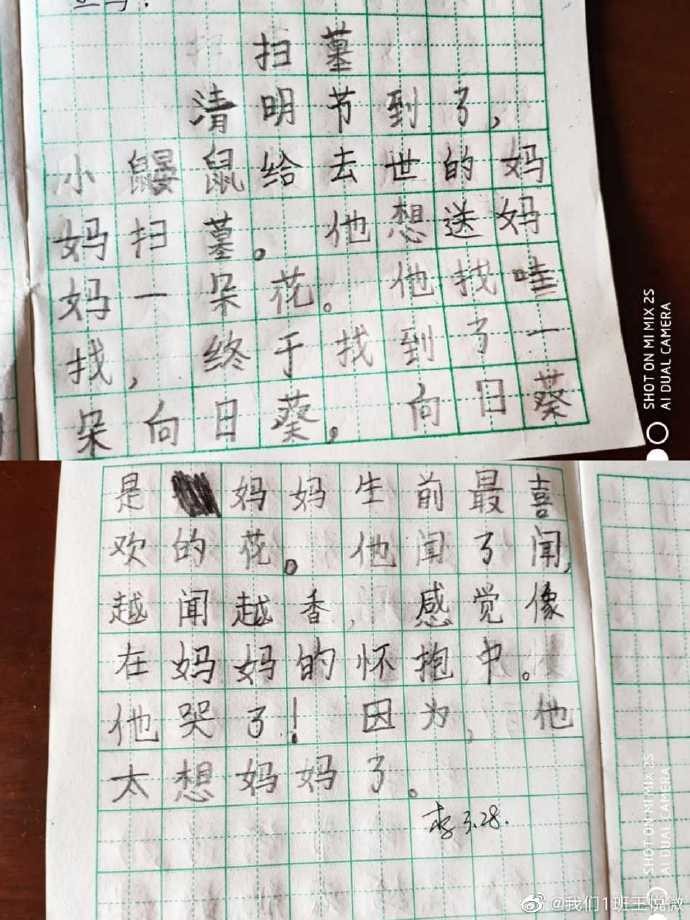 扫墓
清明节到了，
小鼹鼠给去世的妈
妈扫墓。他想送妈
妈一朵花。他找哇
找，终于找到了一
朵向日葵。向日葵
SHOT ON MI MIX 2S
AI DUAL CAMERA
是妈妈生前最喜
欢的花。他闻了闻，
越闻越香，感觉像
在妈妈的怀抱中。
他哭了！因为，他
太想妈妈了。
3.28.
SHOT ON MI MIX 2S
AI DUAL CAMERA
@我们1班王悦微